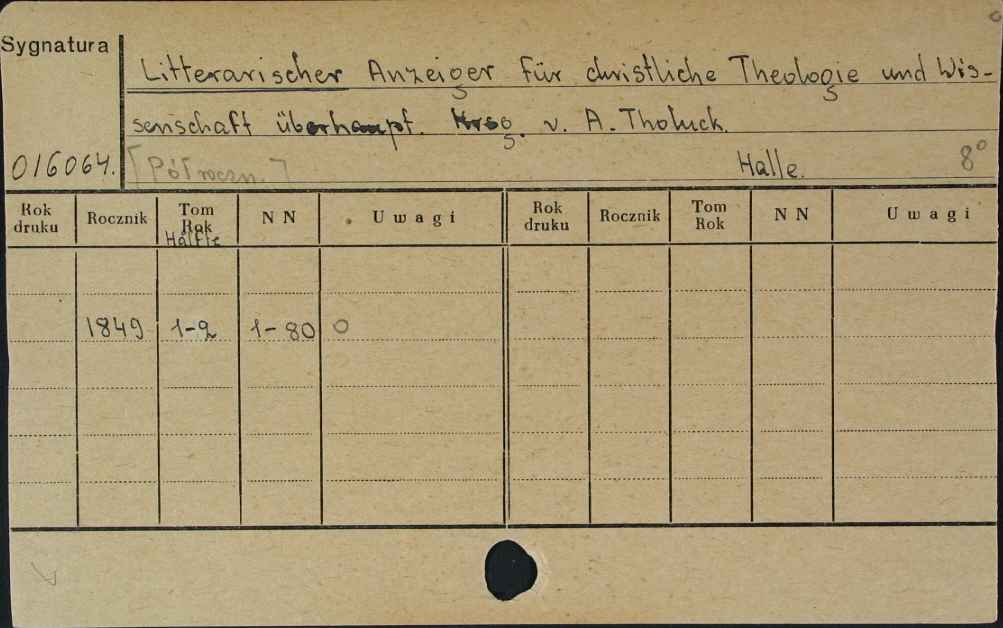 Sygnatura
Litterarischer Anzeiger für christliche Theologie und Wis-
senschaft überhaupt. Hrsg. v. A. Tholuck.
016064. [Półroczn.] Halle. 8°
Rok druku Rocznik Tom Rok Hälfte N N Uwagi Rok druku Rocznik Tom Rok N N Uwagi
1849 1-2 1-80 O